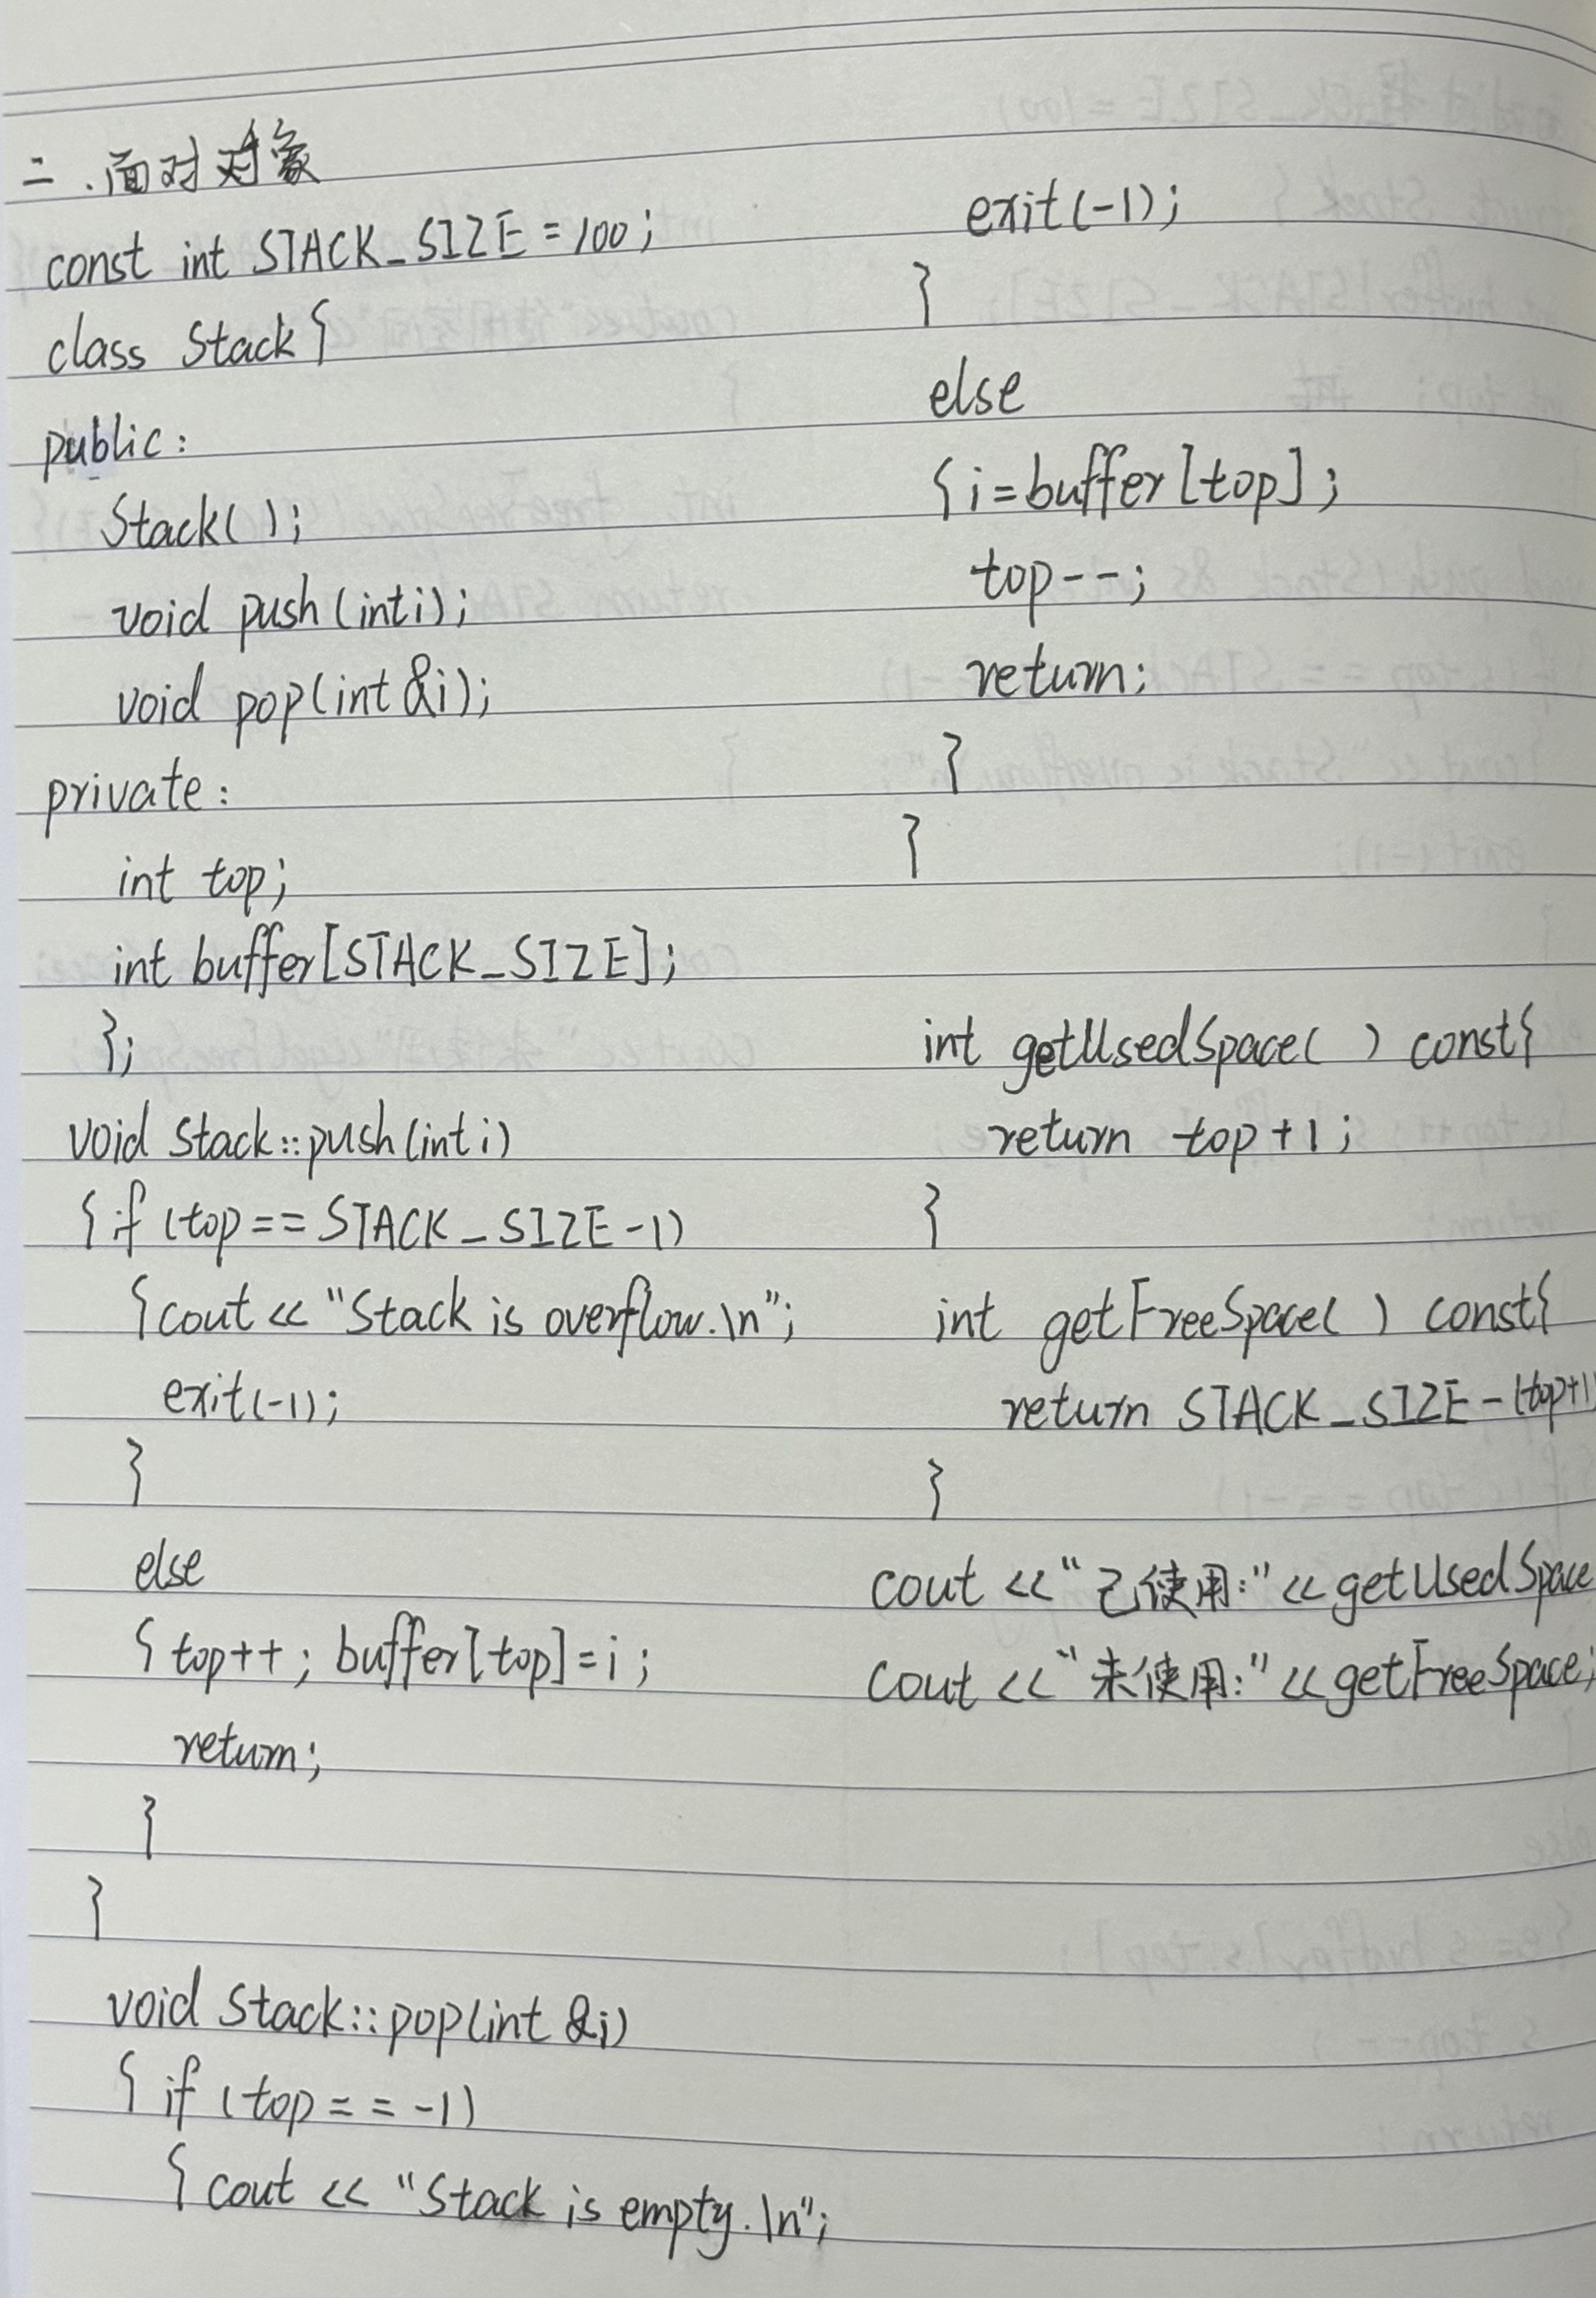 二.面对对象
const int STACK_SIZE=100;
class Stack{
public:
Stack();
void push(int i);
void pop(int &i);
private:
int top;
int buffer[STACK_SIZE];
};
void Stack::push(int i)
{if (top==STACK_SIZE-1)
{cout << "Stack is overflow.\n";
exit(-1);
}
else
{top++; buffer[top]=i;
return;
}
}
void Stack::pop(int &i)
{if (top==-1)
{cout << "Stack is empty.\n";
exit(-1);
}
else
{i=buffer[top];
top--;
return;
}
}
int getUsedSpace( ) const{
return top+1;
}
int getFreeSpace( ) const{
return STACK_SIZE-(top+1)
}
cout <<"已使用:"<<getUsedSpace
cout <<"未使用:"<<getFreeSpace;